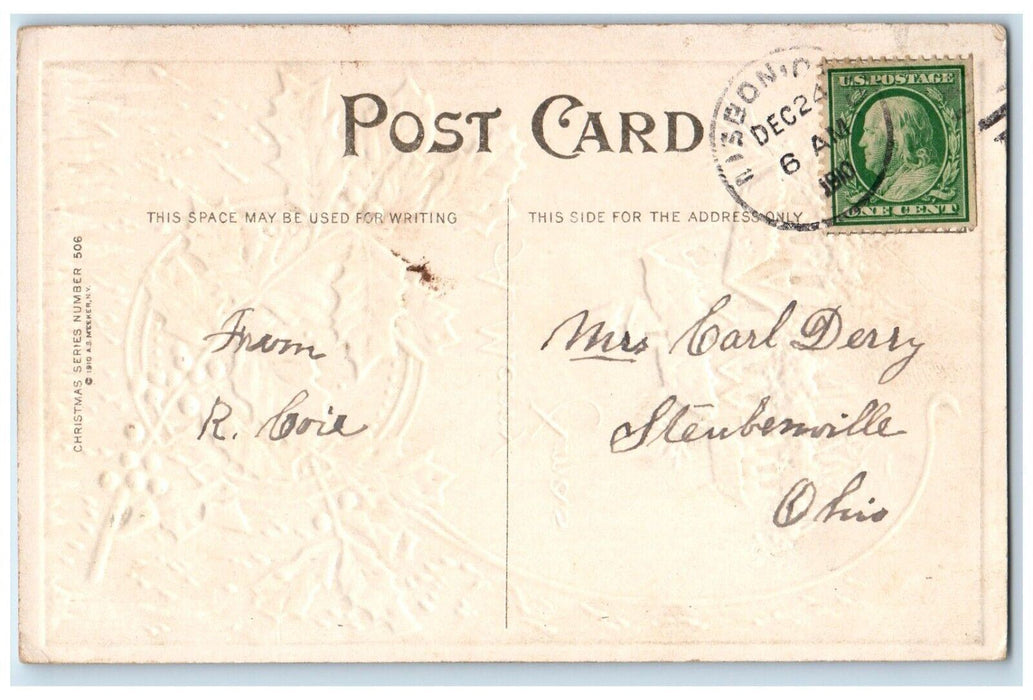 POST CARD
U.S. POSTAGE
ONE CENT
LISBON, O
DEC 24
6 AM
1910
THIS SPACE MAY BE USED FOR WRITING
THIS SIDE FOR THE ADDRESS ONLY
CHRISTMAS SERIES NUMBER 506
© 1910 A.S. MEEKER, N.Y.
From
R. Coie
Mrs Carl Derry
Steubenville
Ohio